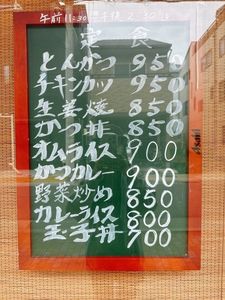 午前11:30 午後2:30
定食
とんかつ 950
チキンカツ 950
生姜焼 850
かつ丼 850
オムライス 900
かつカレー 900
野菜炒め 850
カレーライス 800
玉子丼 700
Asahi